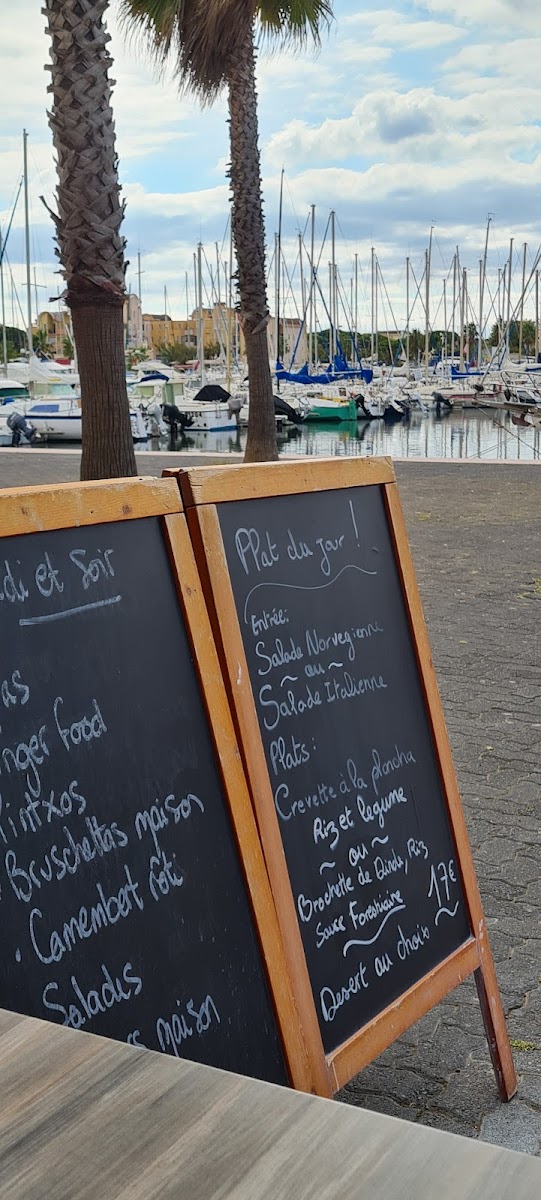 et Soir
Food
Pintxos
Bruschettas maison
. Camembet rôti
Salades
maison
Plat du jour !
Entrée:
Salade Norvegienne
~ ou ~
Salade Italienne
Plats:
Crevette à la plancha
Riz et legume
~ ou ~
Brochette de Dinde, Riz
Sauce Forestiaire
17€
Desert au choix